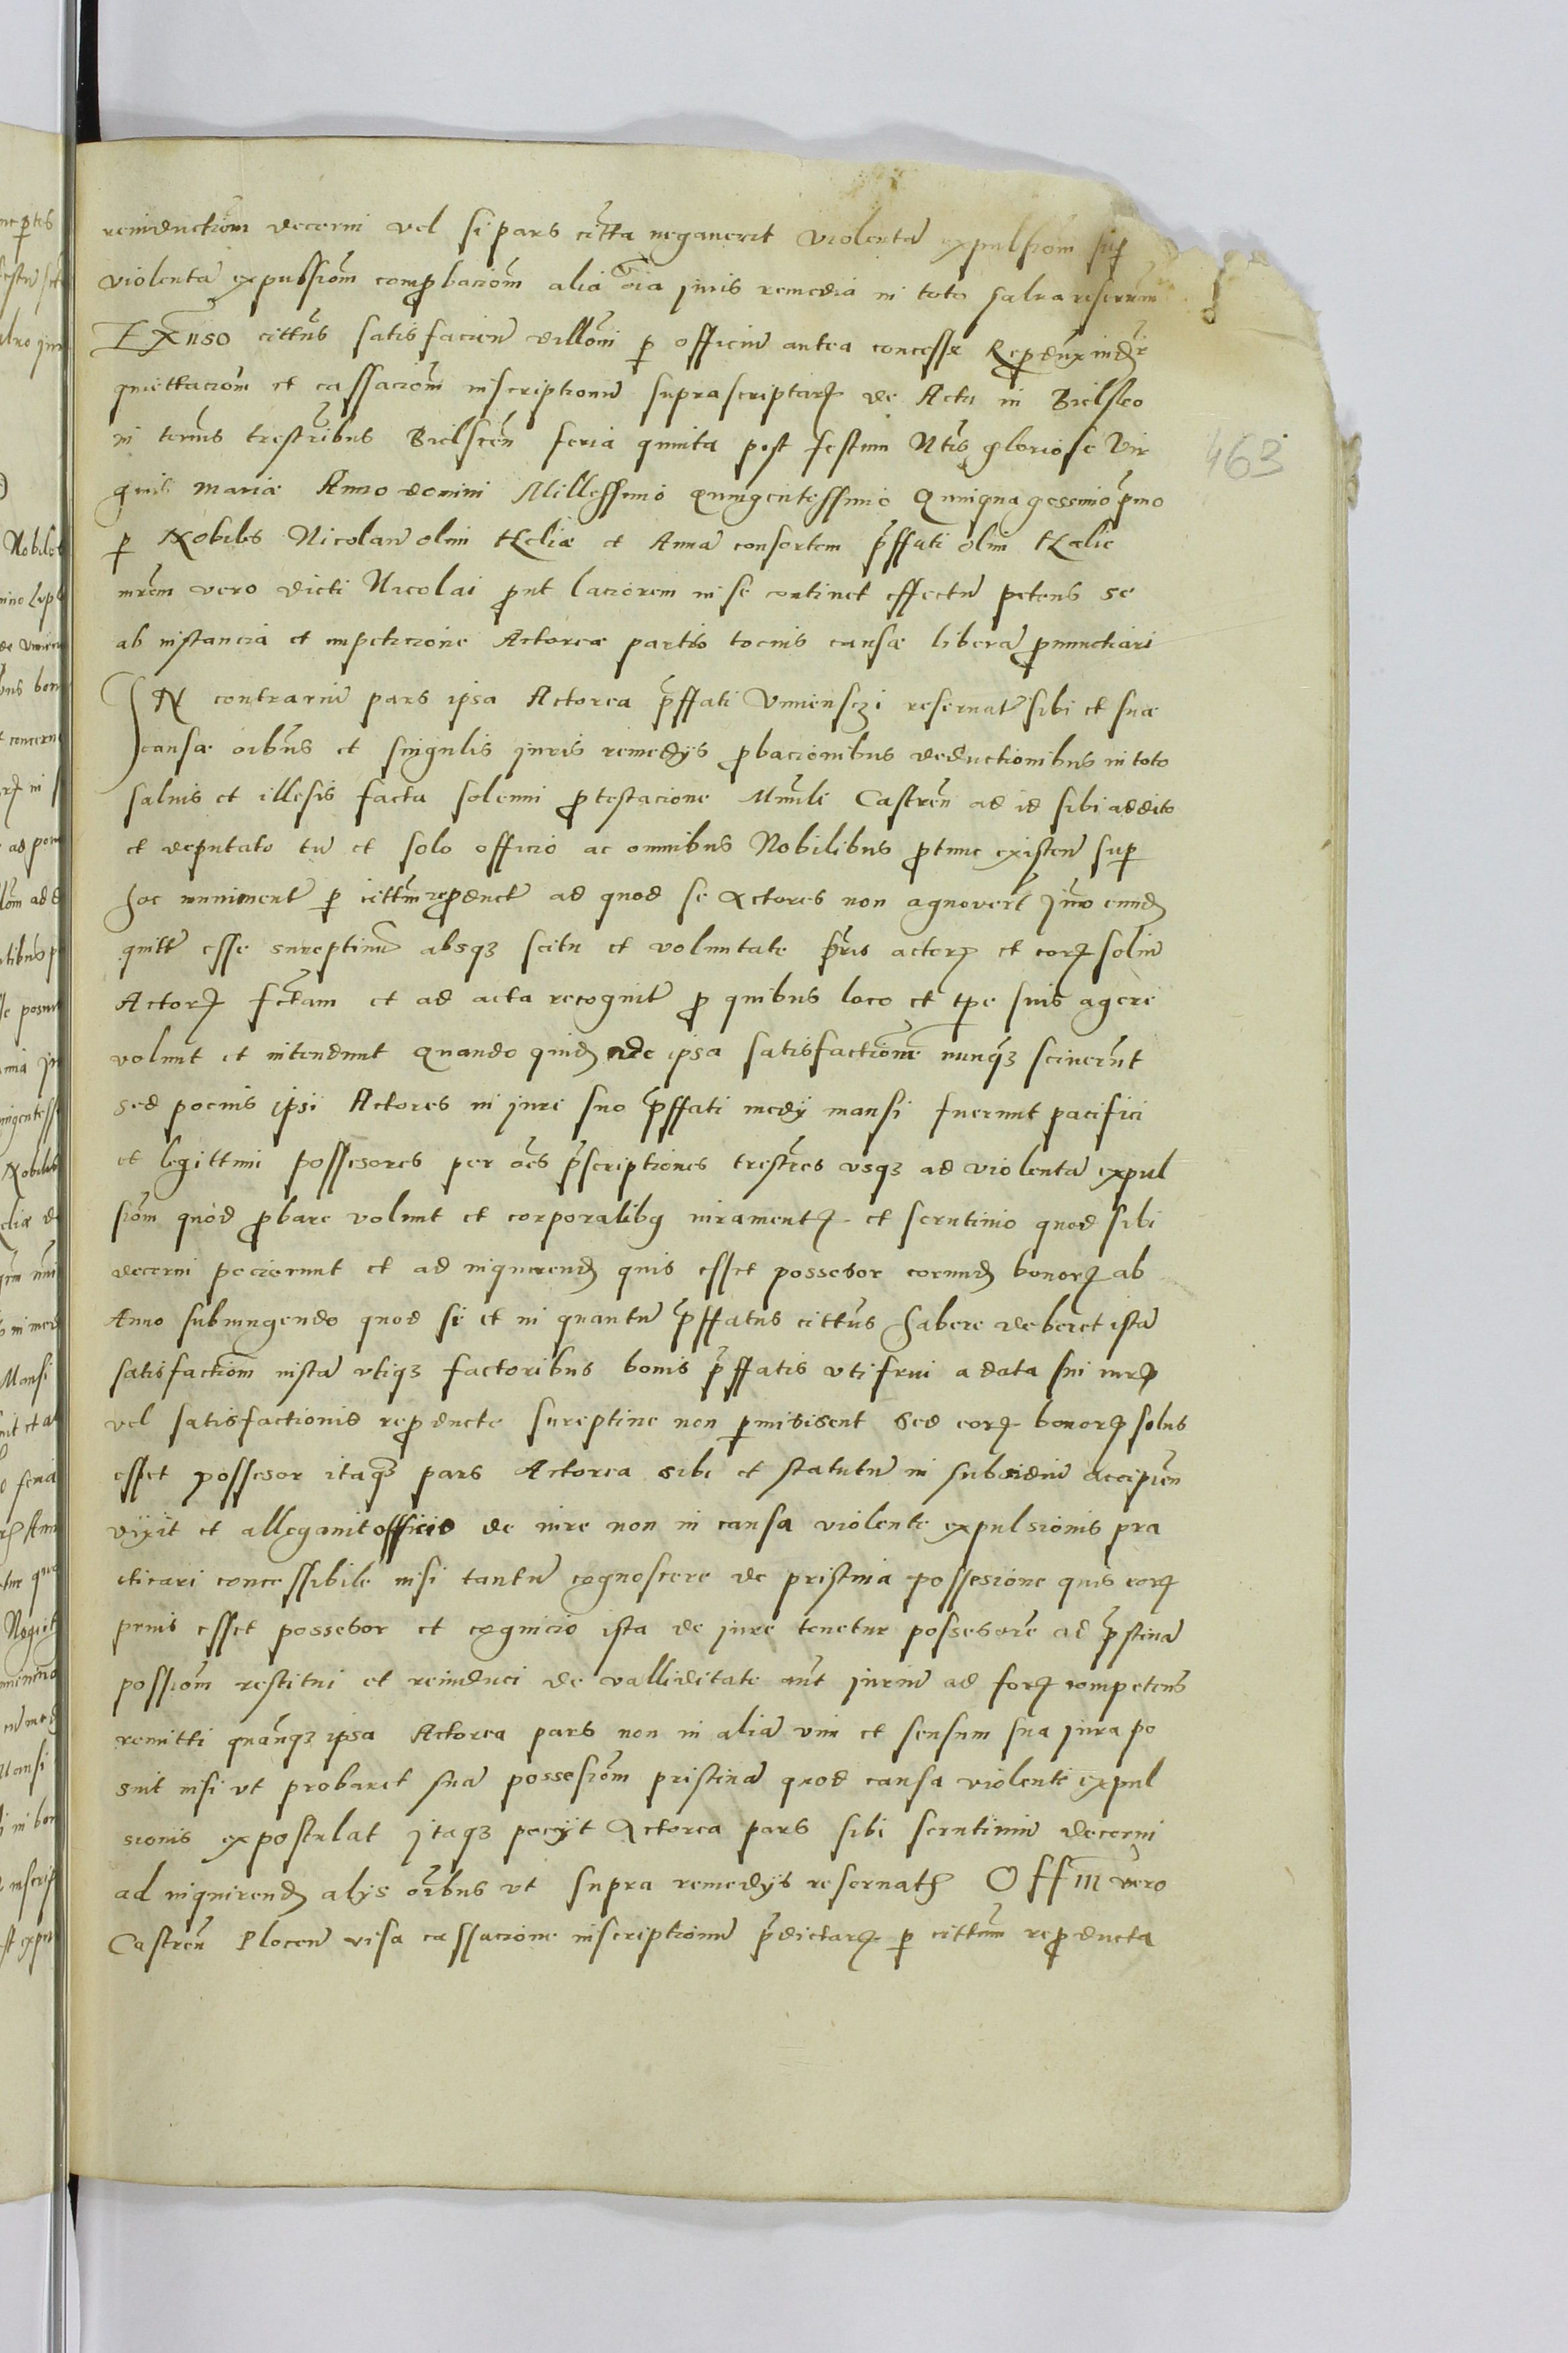 reinductiom decerni vel si pars citta negaverit violentã expulsiom sup
violentã expulsiom comprobaciom alia oia juris remedia in toto salva reservm
Ex adverso cittus satisfacien dillomi p officiũ antea concesse Reproduxit
quiettaciom et cassaciom inscriptionũ suprascriptarꝝ de Actis in Bielsko
in termis trestribus Bielscen feria quinta post festum Ntis gloriose Vir
ginis Mariæ Anno domini Millessimo quingentessimo Quinquagessimo pmo
p Nobiles Nicolaũ olim Heliæ et Annã consortem pffati olim Helie
mrem vero dicti Nicolai prout laciorem in se continet effectũ petens se
ab instancia et impeticione Actoreæ partis tocius causæ liberã pronunctiari
IN contrariũ pars ipsa Actorea pffati reservatr sibi et suæ
causæ oibus et singulis juris remedys probacionibus deductionibus in toto
salvis et illesis facta solenni protestacione Mnrli Castren ad id sibi addito
et deputato tũ et solo officio ac omnibus Nobilibus protunc existen sup
hoc muniment p cittum reproduct ad quod se Actores non agnoverũt jmo eund
quitt esse sureptiuũ absqз scitu et voluntate pris actorꝝ et eorꝝ soliũ
Actorꝝ fctam et ad acta recognit pro quibus loco et tpe suis agere
volunt et intendunt Quando quid de ipsa satisfactione nunqз sciverunt
sed pocius ipsi Actores in jure suo pffati medy mansi fuerunt pacifici
et legittimi possesores per oes pscriptiones trestres vsqз ad violentã expul
siom quod probare volunt et corporalibꝯ iuramentꝭ et scrutinio quod sibi
decerni peciorunt et ad inquirend quis esset possesor eorund bonorꝝ ab
Anno subiungendo quod si et in quantũ pffatus cittus habere deberet istã
satisfactiom iustã vtiqз factoribus bonis pffatis vti frui a data sui iuris
vel satisfactionis reproducte sureptiue non pmisisent Sed eorꝝ bonorꝝ solus
esset possesor itaqз pars Actorea sibi et statutũ in subsidiũ accipien
dixit et allegavit officio de iure non in causa violente expulsionis pra
cticari concessibile nisi tantũ cognoscere de pristinia possesione quis eorꝝ
prius esset possesor et cognicio ista de jure tenetur possesore ad pstinã
possiom restitui et reinduci de valliditate aut juriũ ad forꝝ competens
remitti quanqз ipsa Actorea pars non in aliã vim et sensum sua jura po
suit nisi vt probaret suã possesiom pristinã quod causa violenti expul
sionis expostulat jtaqз pecyt Actorea pars sibi scrutiniũ decerni
ad inquirend alys oibus vt supra remedys reservatis Offm vero
Castren Plocen visa cassacione inscriptionũ pdictarꝝ p cittum reproducta
463